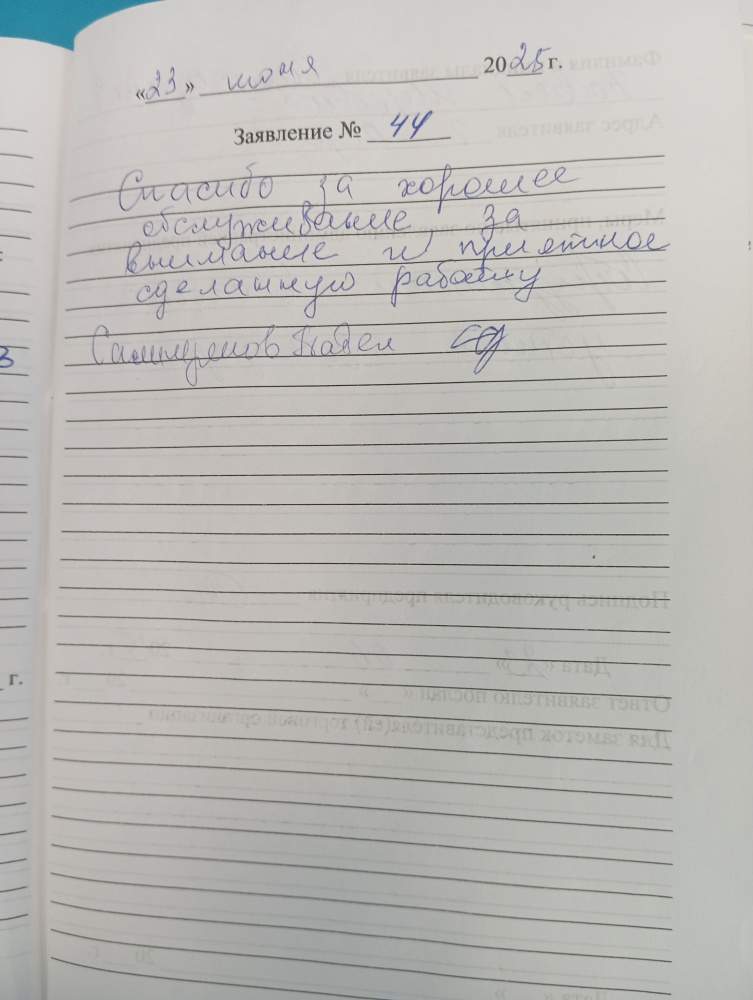 «23» июня 2025 г.
Заявление № 44
Спасибо за хорошее
обслуживание за
внимание и приятное
сделанную работу
Павел
г.